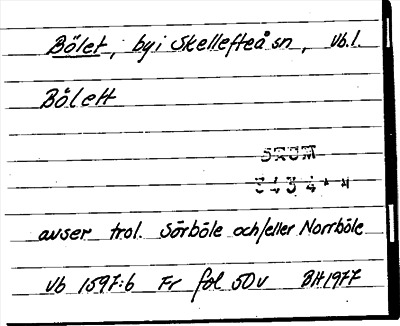 Bölet, by i Skellefteå sn, Vb.l.
Bölett
avser trol. Sörböle och/eller Norrböle
Vb 1597:6 Fr fol 50v BH 1977